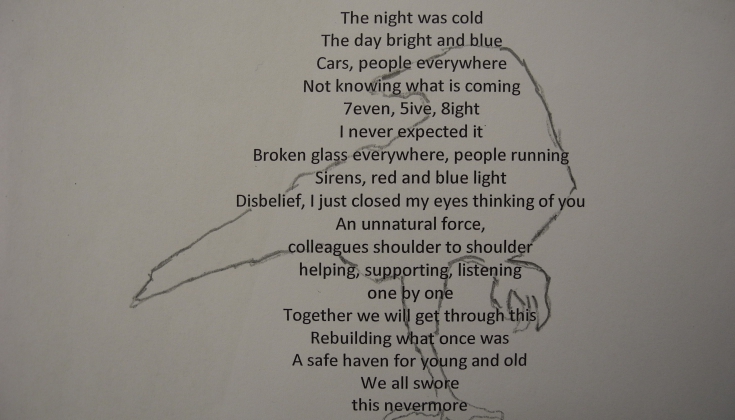 The night was cold
The day bright and blue
Cars, people everywhere
Not knowing what is coming
7even, 5ive, 8ight
I never expected it
Broken glass everywhere, people running
Sirens, red and blue light
Disbelief, I just closed my eyes thinking of you
An unnatural force,
colleagues shoulder to shoulder
helping, supporting, listening
one by one
Together we will get through this
Rebuilding what once was
A safe haven for young and old
We all swore
this nevermore